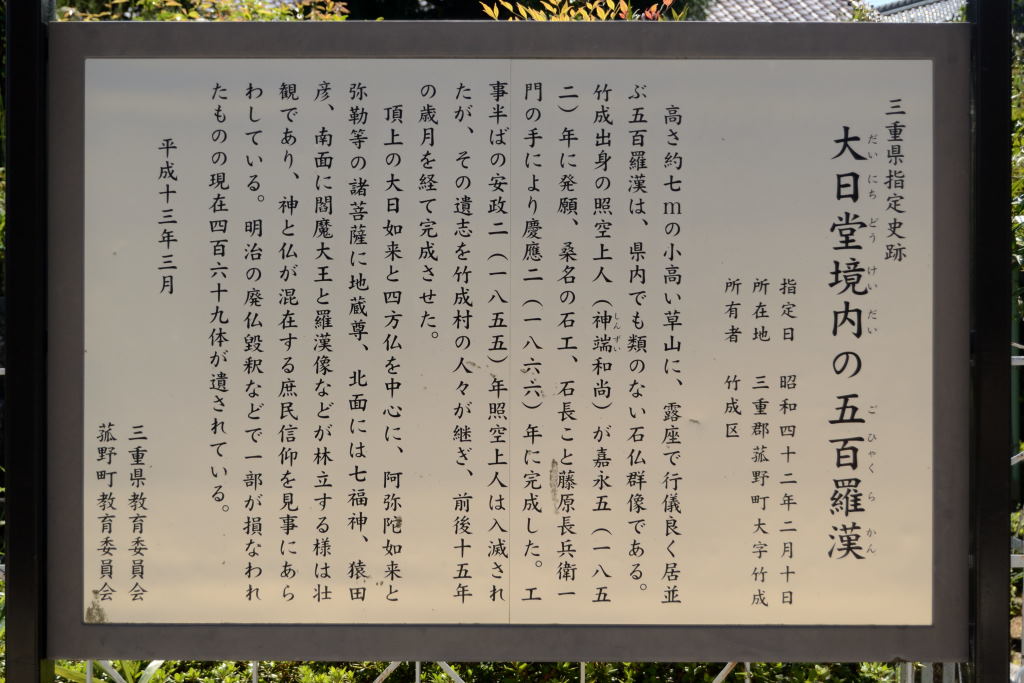 三重県指定史跡
大日堂境内の五百羅漢
だいにちどうけいだいごひゃくらかん
指定日　昭和四十二年二月十日
所在地　三重郡菰野町大字竹成
所有者　竹成区
高さ約七mの小高い草山に、露座で行儀良く居並
ぶ五百羅漢は、県内でも類のない石仏群像である。
竹成出身の照空上人（神端和尚）が嘉永五（一八五
しんずい
二）年に発願、桑名の石工、石長こと藤原長兵衛一
門の手により慶應二（一八六六）年に完成した。工
事半ばの安政二（一八五五）年照空上人は入滅され
たが、その遺志を竹成村の人々が継ぎ、前後十五年
の歳月を経て完成させた。
頂上の大日如来と四方仏を中心に、阿弥陀如来と
弥勒等の諸菩薩に地蔵尊、北面には七福神、猿田
彦、南面に閻魔大王と羅漢像などが林立する様は壮
観であり、神と仏が混在する庶民信仰を見事にあら
わしている。明治の廃仏毀釈などで一部が損なわれ
たものの現在四百六十九体が遺されている。
平成十三年三月
三重県教育委員会
菰野町教育委員会